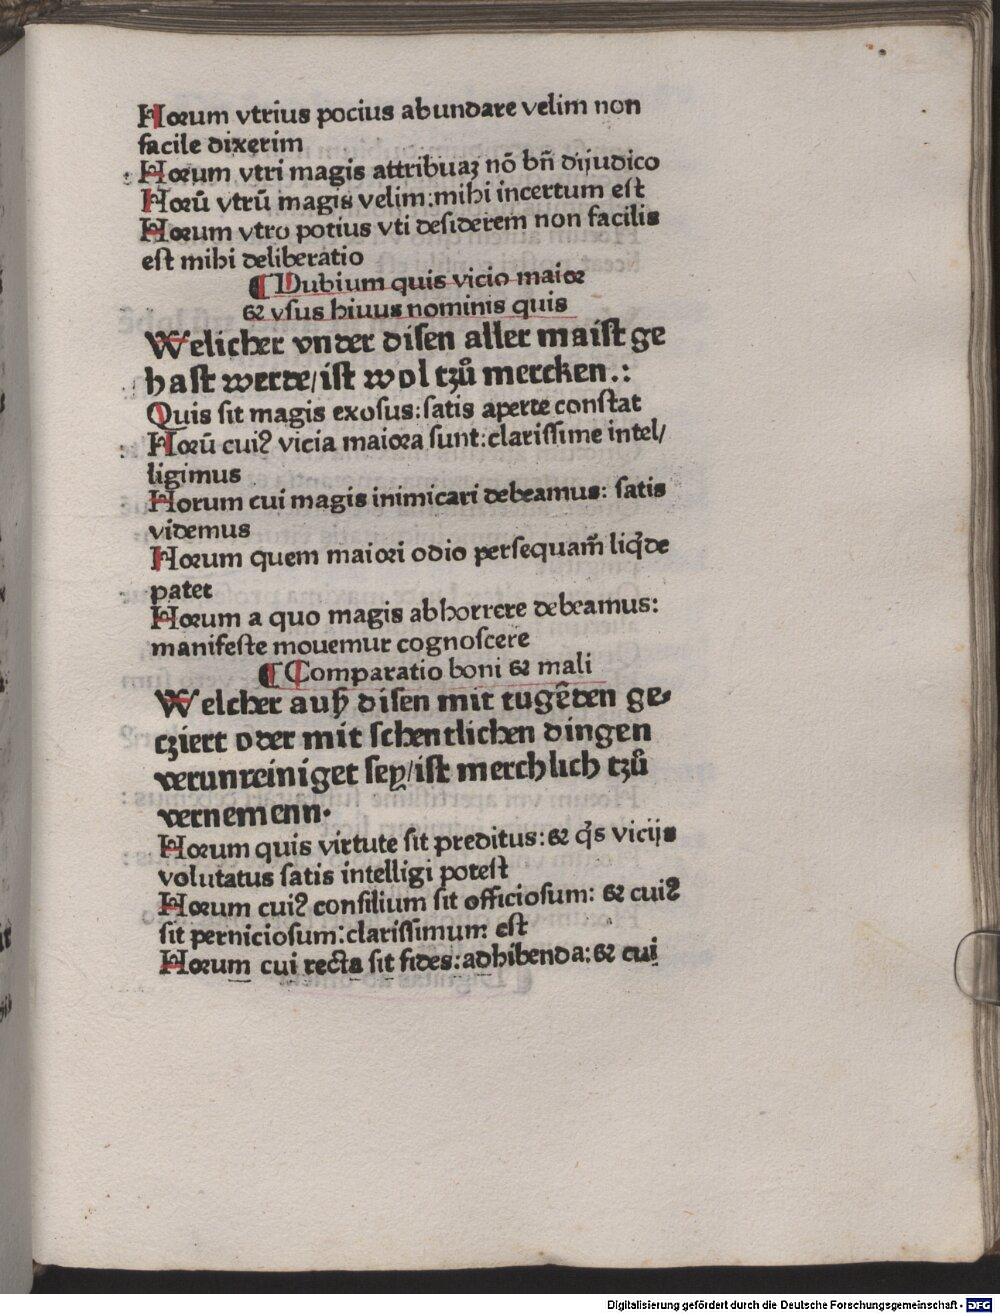 Horum vtrius pocius abundare velim non
facile dixerim
Horum vtri magis attribuaꝫ nō bn̄ dijudico
Horū vtrū magis velim:mihi incertum est
Horum vtro potius vti desiderem non facilis
est mihi deliberatio
¶ Dubium quis vicio maior
& vsus huius nominis quis
Welicher vnder disen aller maist ge
hast werde/ist wol tzů mercken.:
Quis sit magis exosus:satis aperte constat
Horū cuiꝰ vicia maiora sunt:clarissime intel/
ligimus
Horum cui magis inimicari debeamus: satis
videmus
Horum quem maiori odio persequam̄ liq̄de
patet
Horum a quo magis abhorrere debeamus:
manifeste mouemur cognoscere
¶ Comparatio boni & mali
Welcher auß disen mit tugēden ge-
cziert oder mit schentlichen dingen
verunreiniget sey/ist merchlich tzů
vernemenn.
Horum quis virtute sit preditus:& q̄s vicijs
volutatus satis intelligi potest
Horum cuiꝰ consilium sit officiosum: & cuiꝰ
sit perniciosum:clarissimum est
Horum cui recta sit fides:adhibenda:& cui
Digitalisierung gefördert durch die Deutsche Forschungsgemeinschaft - DFG